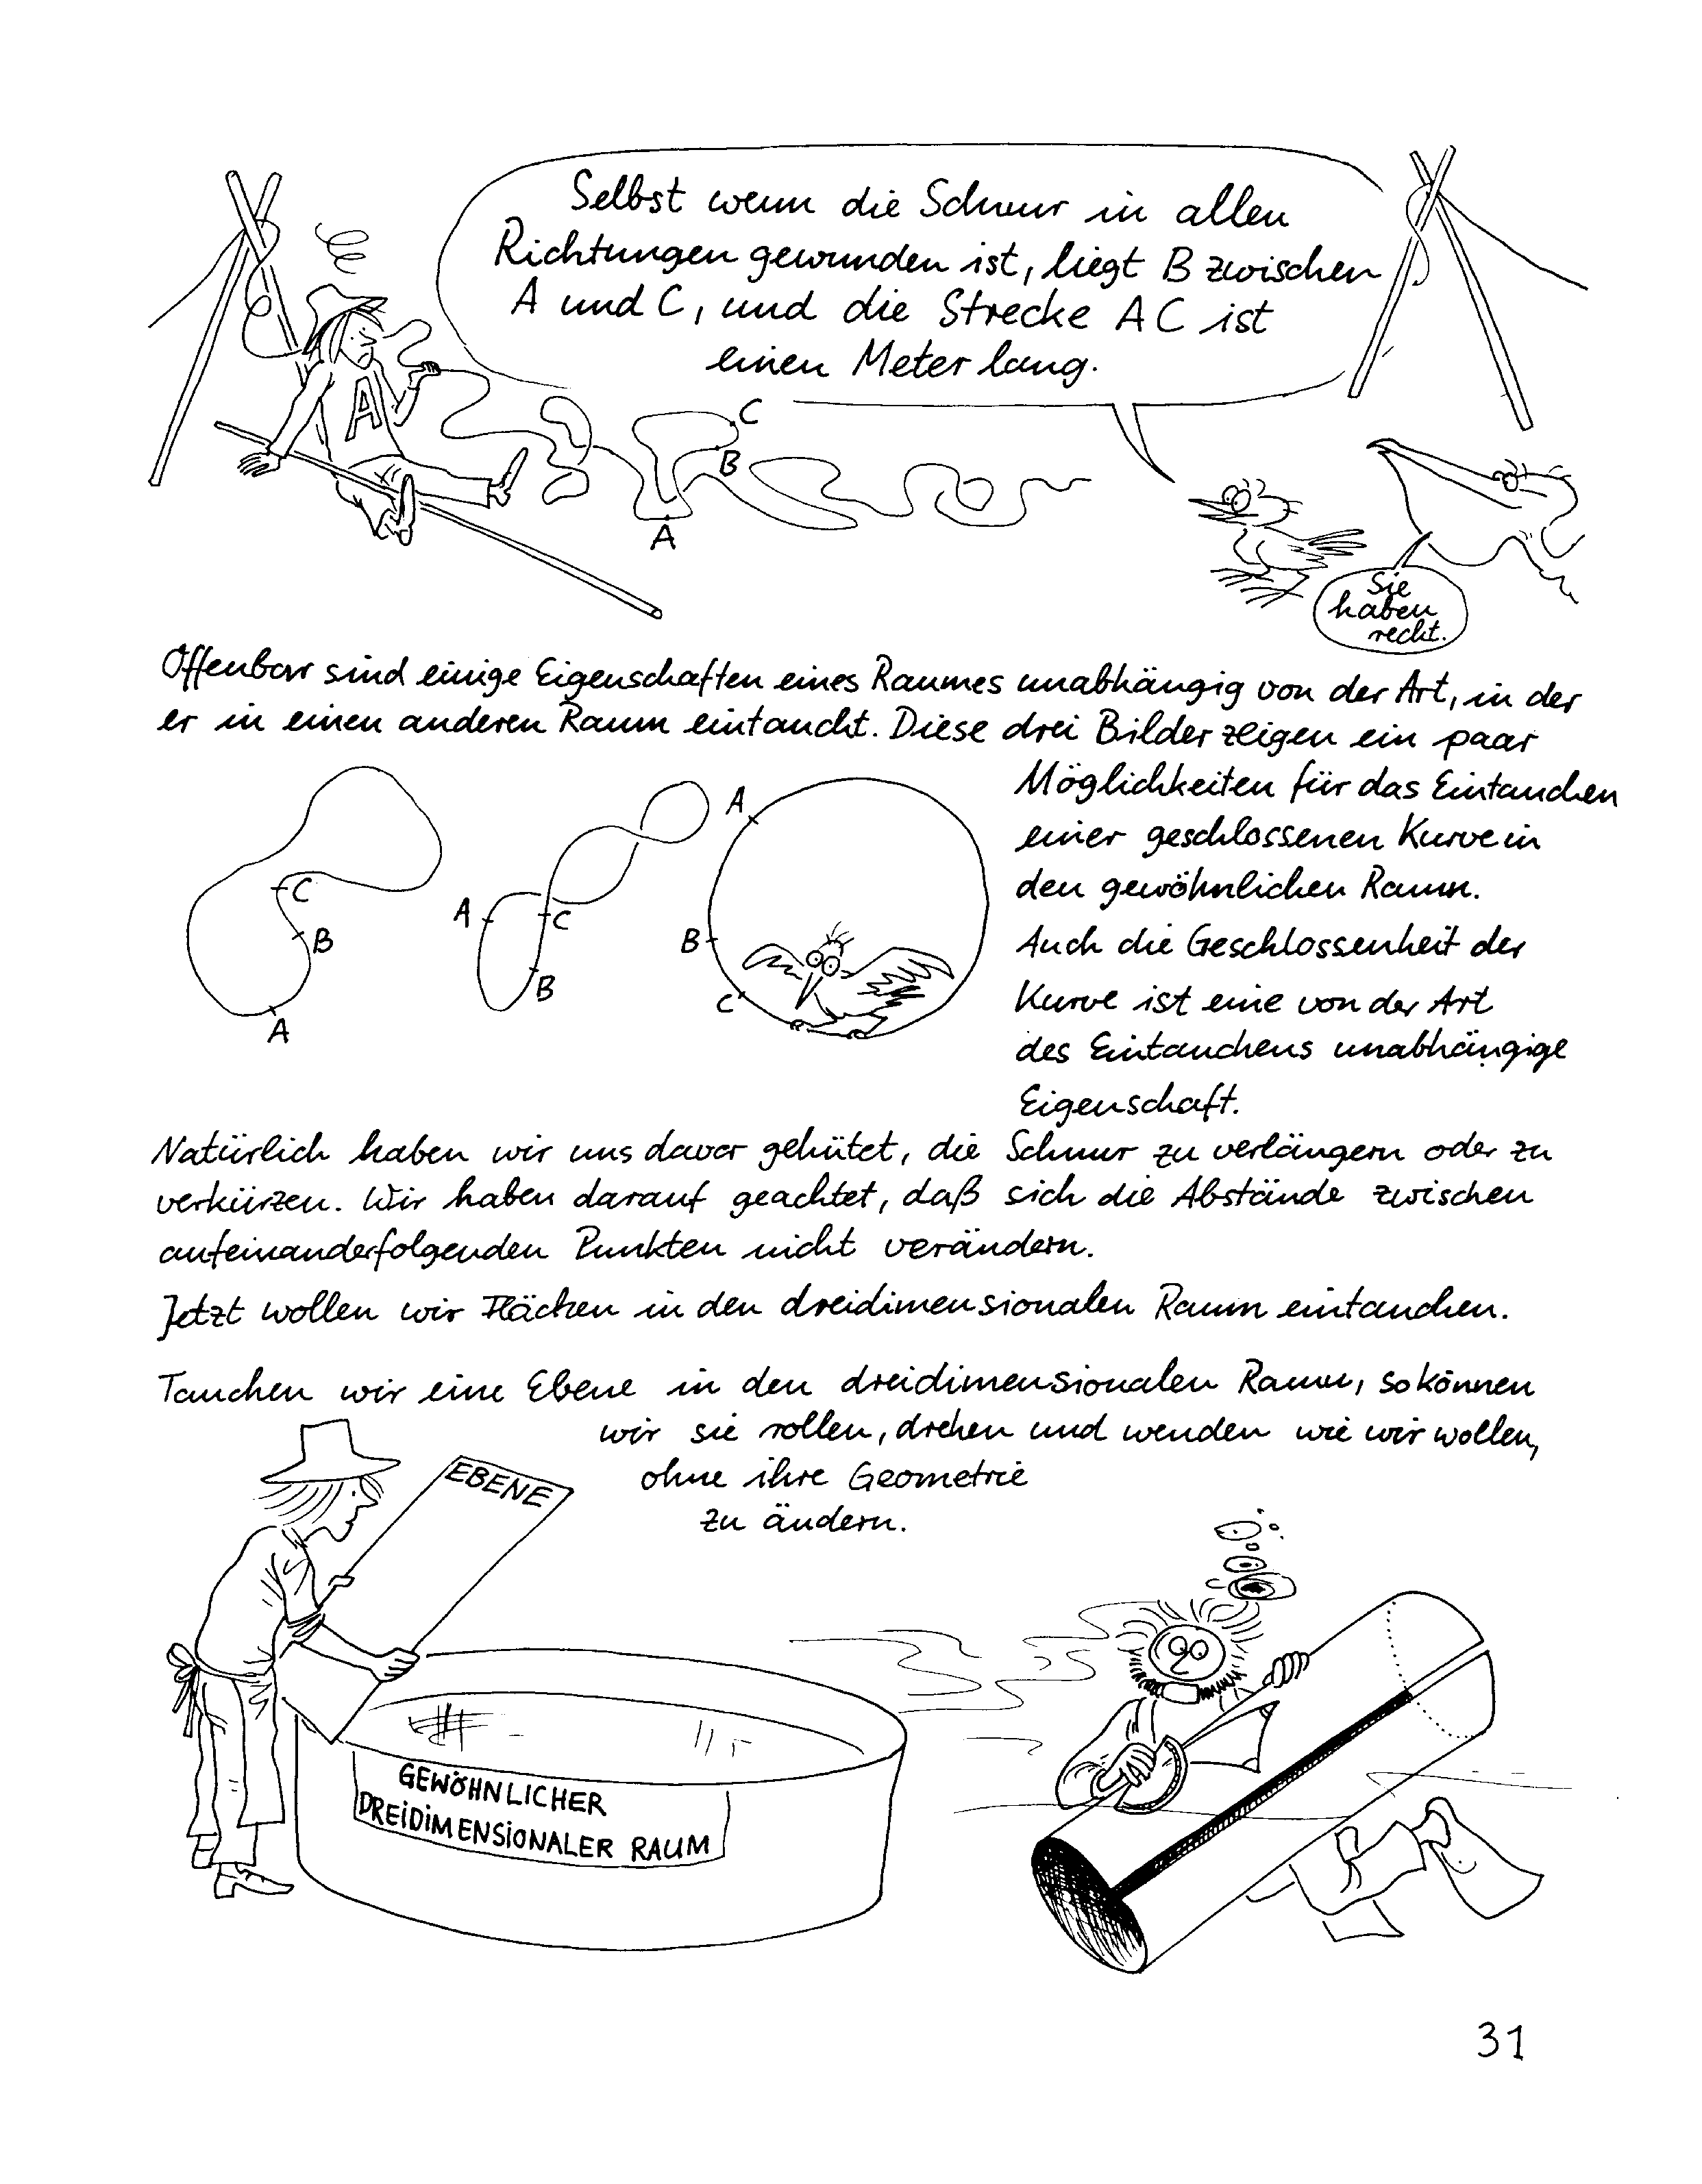 Selbst wenn die Schnur in allen
Richtungen gewunden ist, liegt B zwischen
A und C, und die Strecke AC ist
einen Meter lang.
A
C
B
A
Sie
haben
recht.
Offenbar sind einige Eigenschaften eines Raumes unabhängig von der Art, in der
er in einen anderen Raum eintaucht. Diese drei Bilder zeigen ein paar
Möglichkeiten für das Eintauchen
einer geschlossenen Kurve in
den gewöhnlichen Raum.
Auch die Geschlossenheit der
Kurve ist eine von der Art
des Eintauchens unabhängige
Eigenschaft.
C
B
A
A
C
B
A
B
C
Natürlich haben wir uns davor gehütet, die Schnur zu verlängern oder zu
verkürzen. Wir haben darauf geachtet, daß sich die Abstände zwischen
aufeinanderfolgenden Punkten nicht verändern.
Jetzt wollen wir Flächen in den dreidimensionalen Raum eintauchen.
Tauchen wir eine Ebene in den dreidimensionalen Raum, so können
wir sie rollen, drehen und wenden wie wir wollen,
ohne ihre Geometrie
zu ändern.
EBENE
GEWÖHNLICHER
DREIDIMENSIONALER RAUM
31